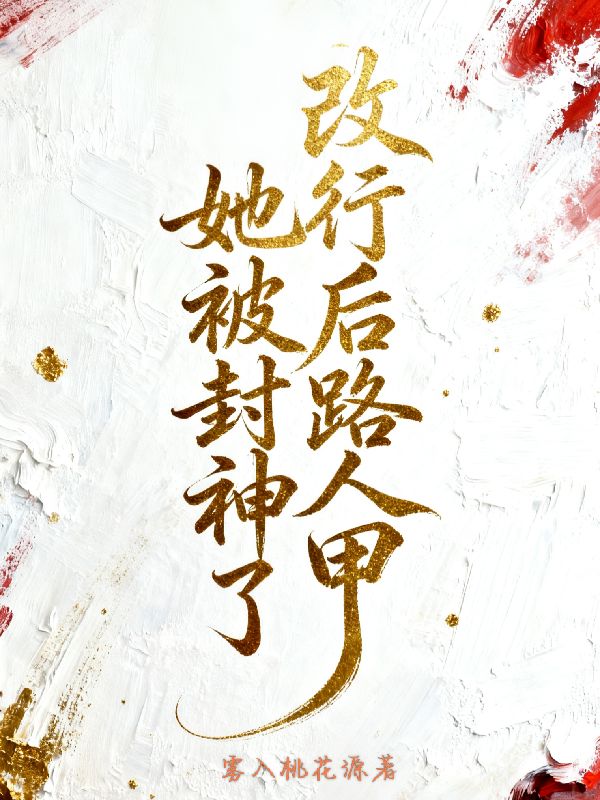 改行后路人甲
她被封神了
雾入桃花源著